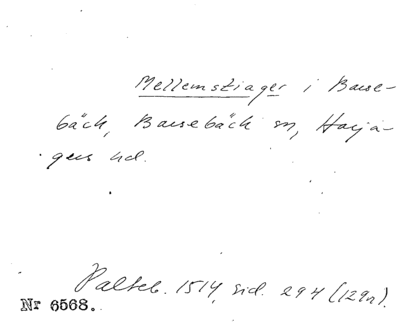 Mellemstiager i Barse-
bäck, Barsebäck sn, Harja-
gers hd.
Palteb. 1514, sid. 294 (129n).
Nr 6568.